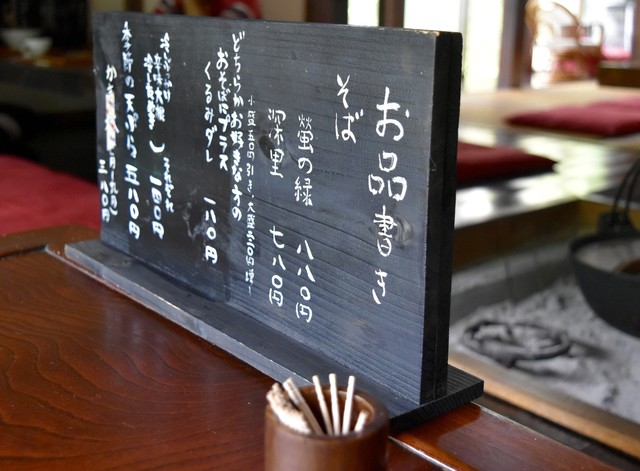 お品書き
そば
蛍の緑 八八〇円
深里 七八〇円
小盛五〇円引き、大盛三〇〇円増し
どちらかお好きな方の
おそばにプラス
くるみダレ 一八〇円
辛味大根
一四〇円
季節の天ぷら 五八〇円
三八〇円